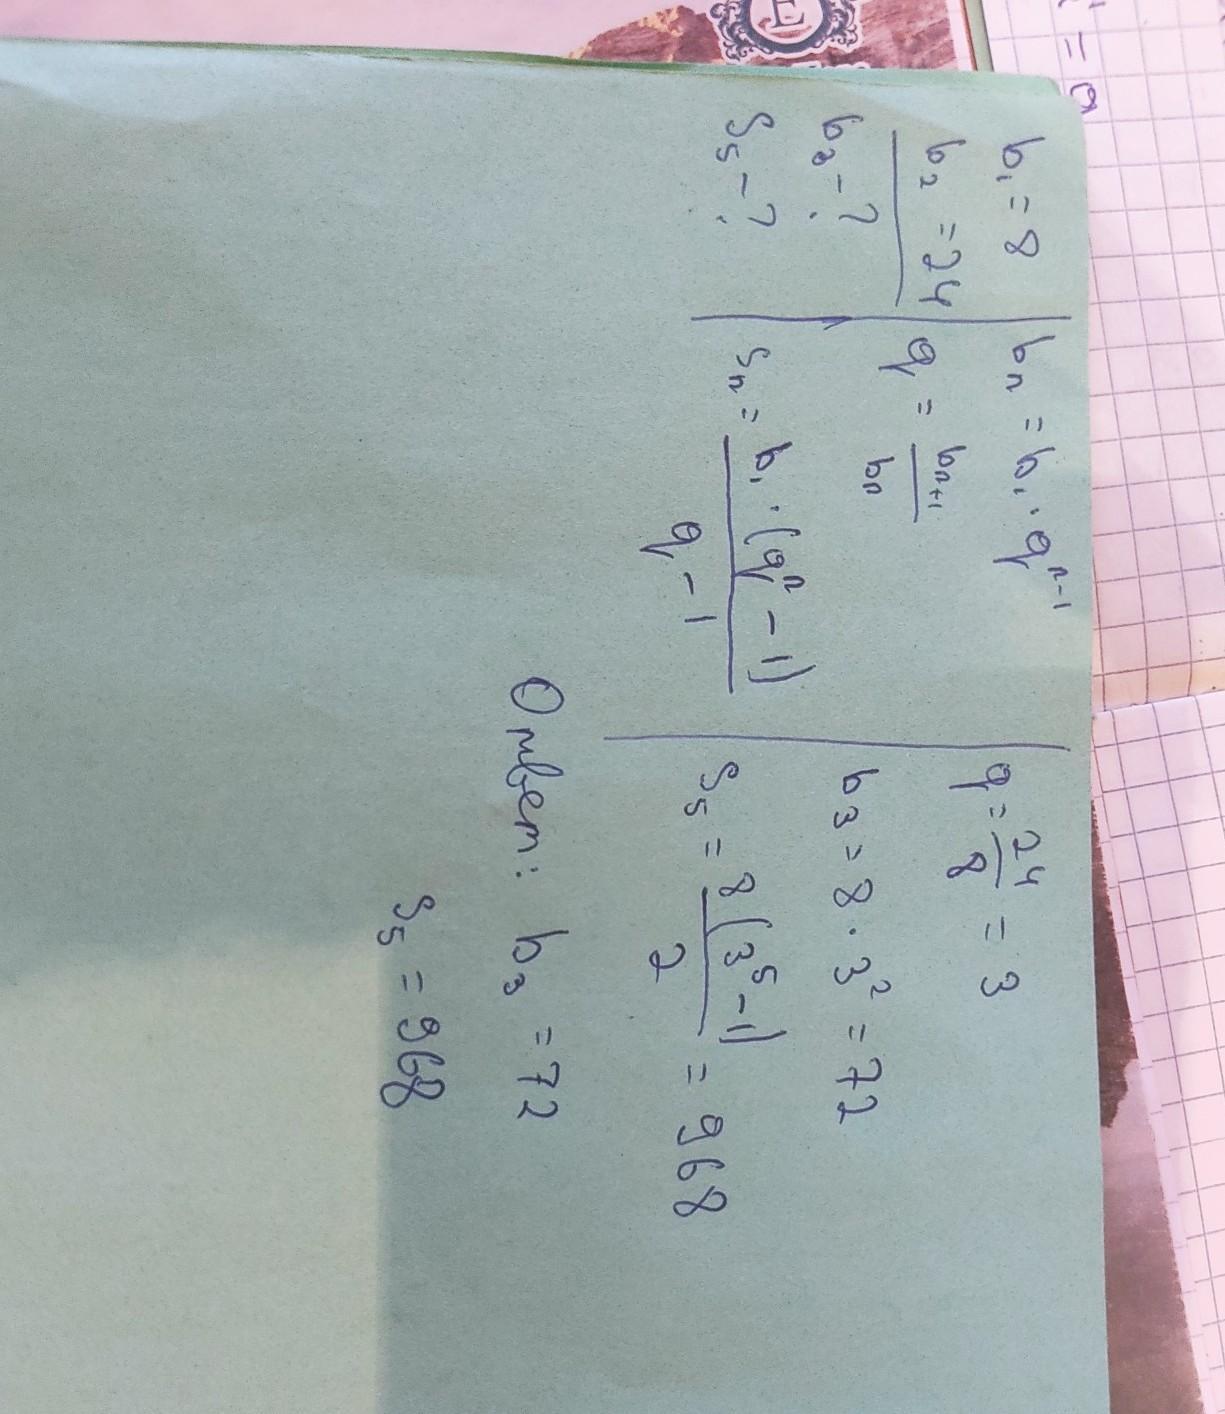 b₁ = 8
b₂ = 24
b₃ - ?
S₅ - ?
bₙ = b₁ · qⁿ⁻¹
q = bₙ₊₁ / bₙ
Sₙ = b₁ · (qⁿ - 1) / q - 1
q = 24 / 8 = 3
b₃ = 8 · 3² = 72
S₅ = 8 (3⁵ - 1) / 2 = 968
Ответ: b₃ = 72
S₅ = 968
E
= 0